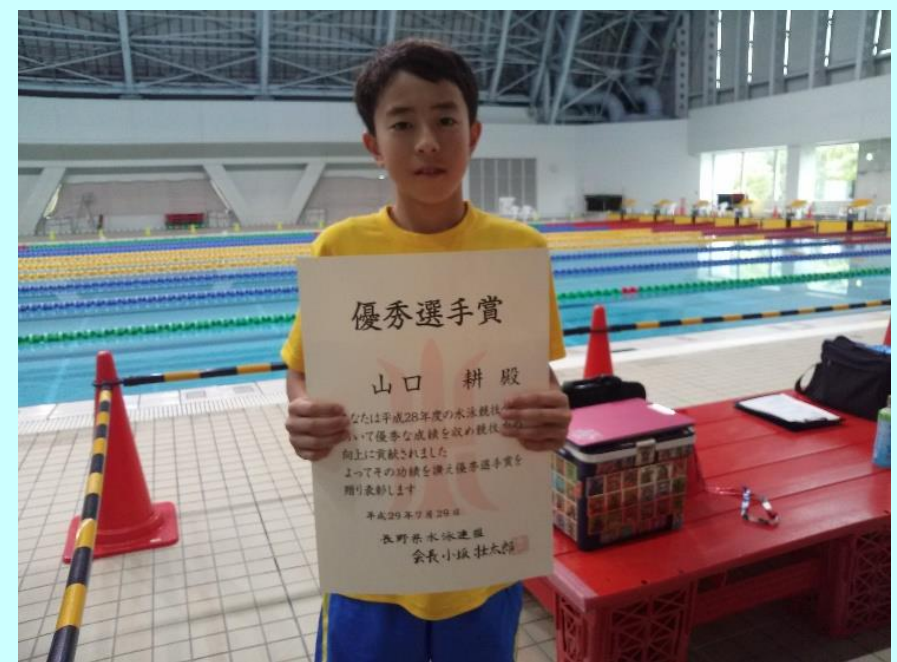 優秀選手賞
山口 耕 殿
なたは平成28年度の水泳競技
いて優秀な成績を収め競技
向上に貢献されました
よってその功績を讃え優秀選手賞を
贈り表彰します
平成29年7月29日
長野県水泳連盟
会長 小坂 壮太郎